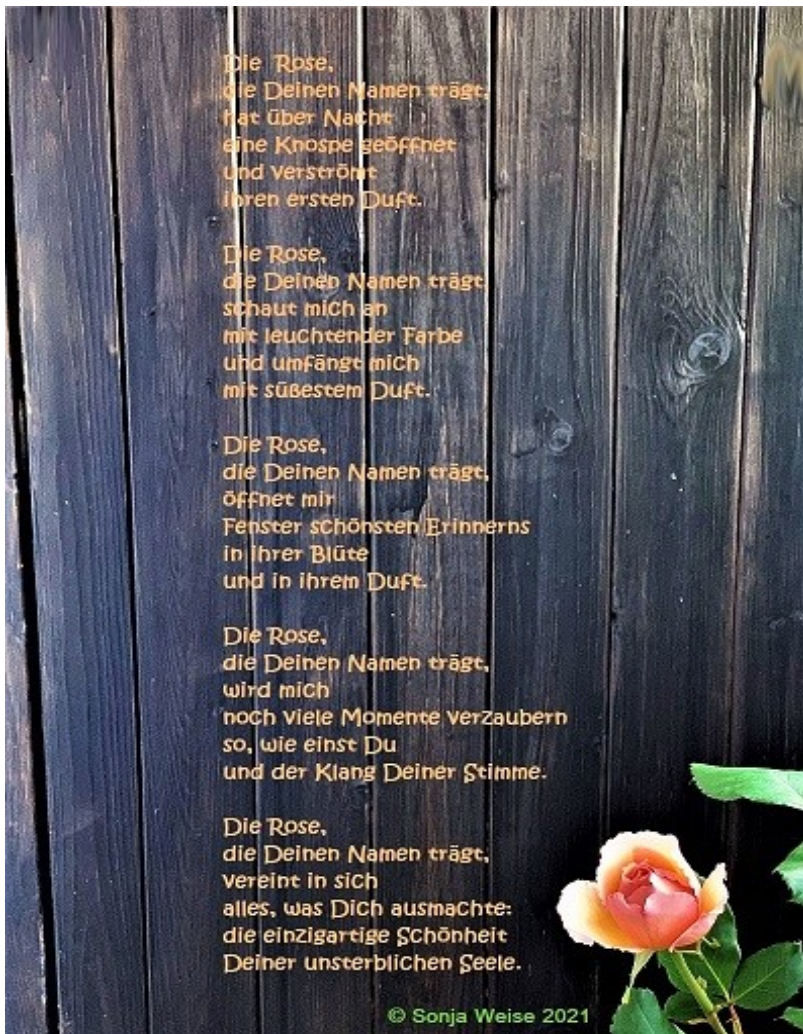 Die Rose,
die Deinen Namen trägt,
hat über Nacht
eine Knospe geöffnet
und verströmt
ihren ersten Duft.

Die Rose,
die Deinen Namen trägt,
schaut mich an
mit leuchtender Farbe
und umfängt mich
mit süßestem Duft.

Die Rose,
die Deinen Namen trägt,
öffnet mir
Fenster schönsten Erinnerns
in ihrer Blüte
und in ihrem Duft.

Die Rose,
die Deinen Namen trägt,
wird mich
noch viele Momente verzaubern
so, wie einst Du
und der Klang Deiner Stimme.

Die Rose,
die Deinen Namen trägt,
vereint in sich
alles, was Dich ausmachte:
die einzigartige Schönheit
Deiner unsterblichen Seele.

© Sonja Weise 2021